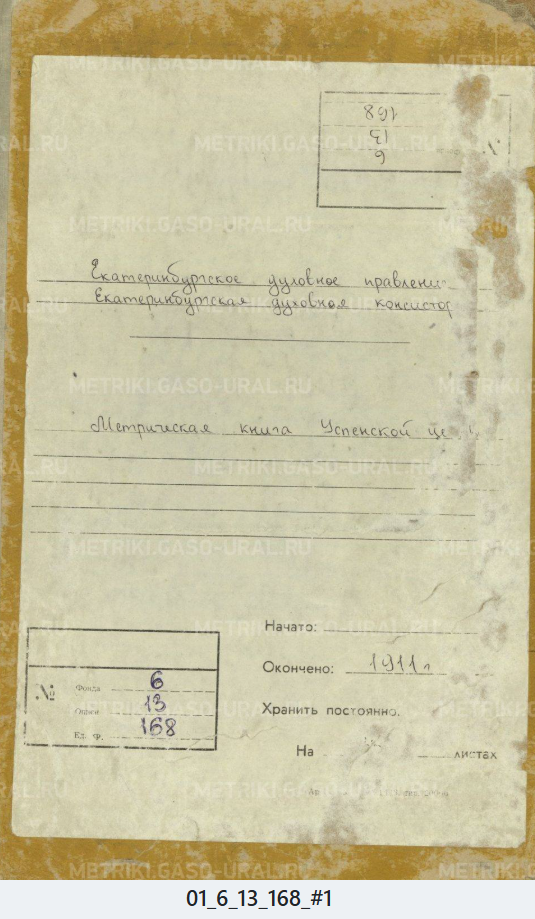 168
13
6
№
Екатеринбургское духовное правление
Екатеринбургская духовная консистор
Метрическая книга Успенской це
Начато:
Окончено: 1911 г
Хранить постоянно.
На листах
№
Фонда 6
Описи 13
Ед. хр. 168
METRIKI.GASO-URAL.RU
01_6_13_168_#1